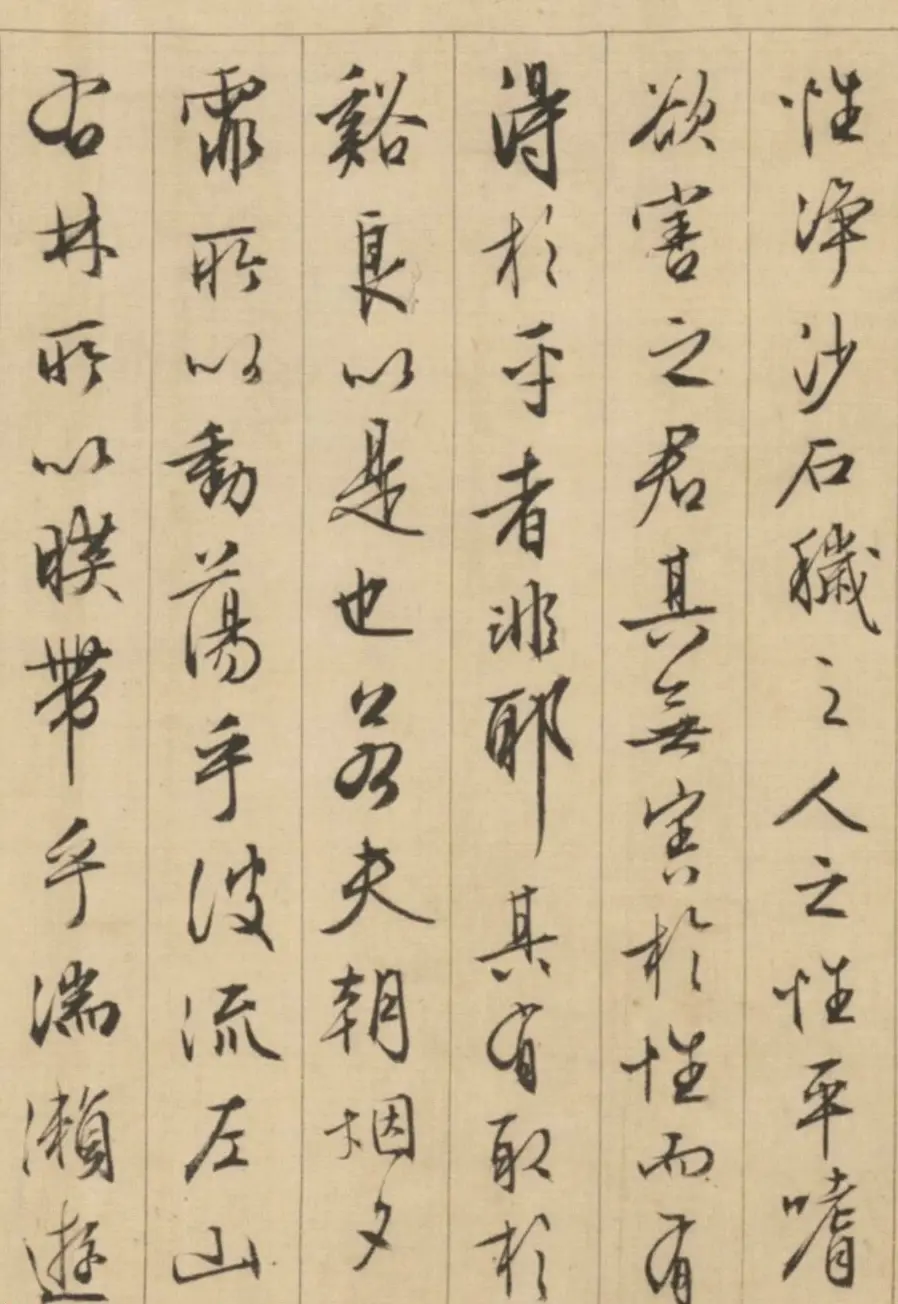 性净沙石穢之人之性平嗜
欲害之君其無害於性而有
得於平者非耶其有取於
谿良以是也若夫朝烟夕
霏所以動蕩乎波流左山
右林所以暎帶乎湍瀨遊